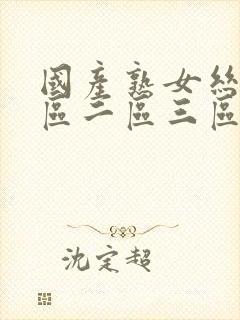 國產熟女絲
區二區三區
沈定超